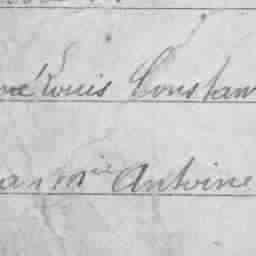 né Louis Constan
an Mie Antoine